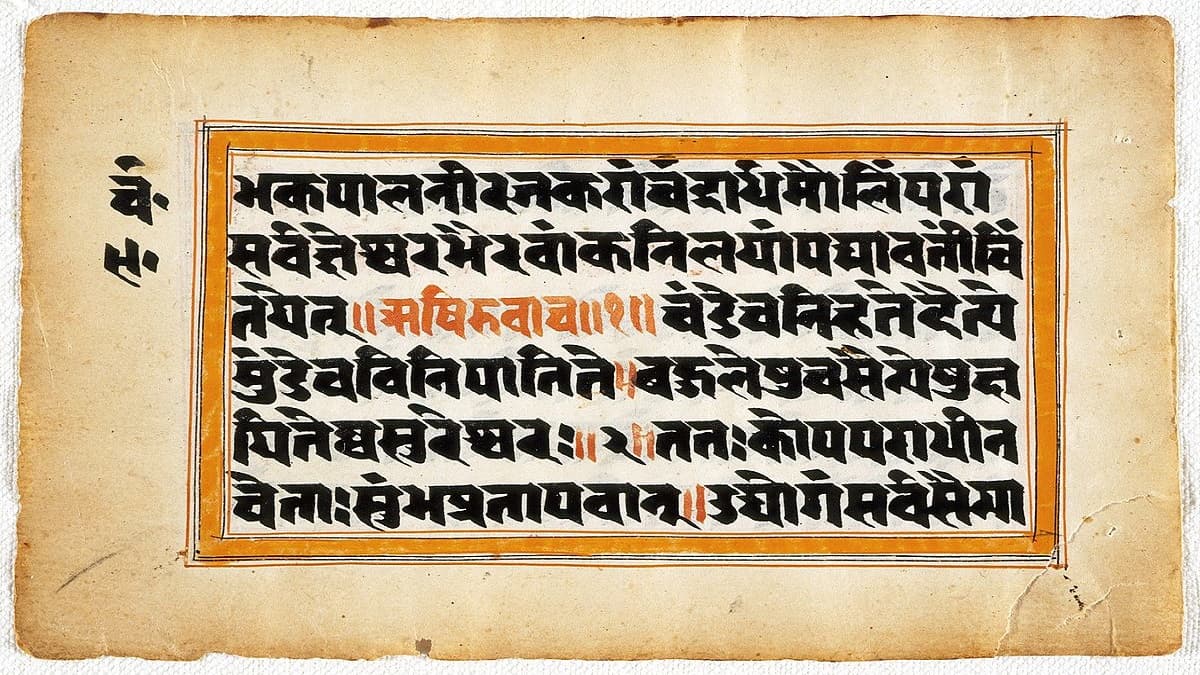 भकपालनीरजकरांचंद्रार्धमौलिंपरां
सर्वज्ञेश्वरभैरवांकनिलयांपद्मावतींचिं
तयेत्॥ऋषिरुवाच॥१॥चंडेचनिहतेदैत्ये
मुंडेचविनिपातिते।बहुलेषुचसैन्येषुक्ष
यितेश्वसुरेश्वरः॥२॥ततःकोपपराधीन
चेताःसुंभप्रतापवान्॥उद्योगंसर्वसैन्या